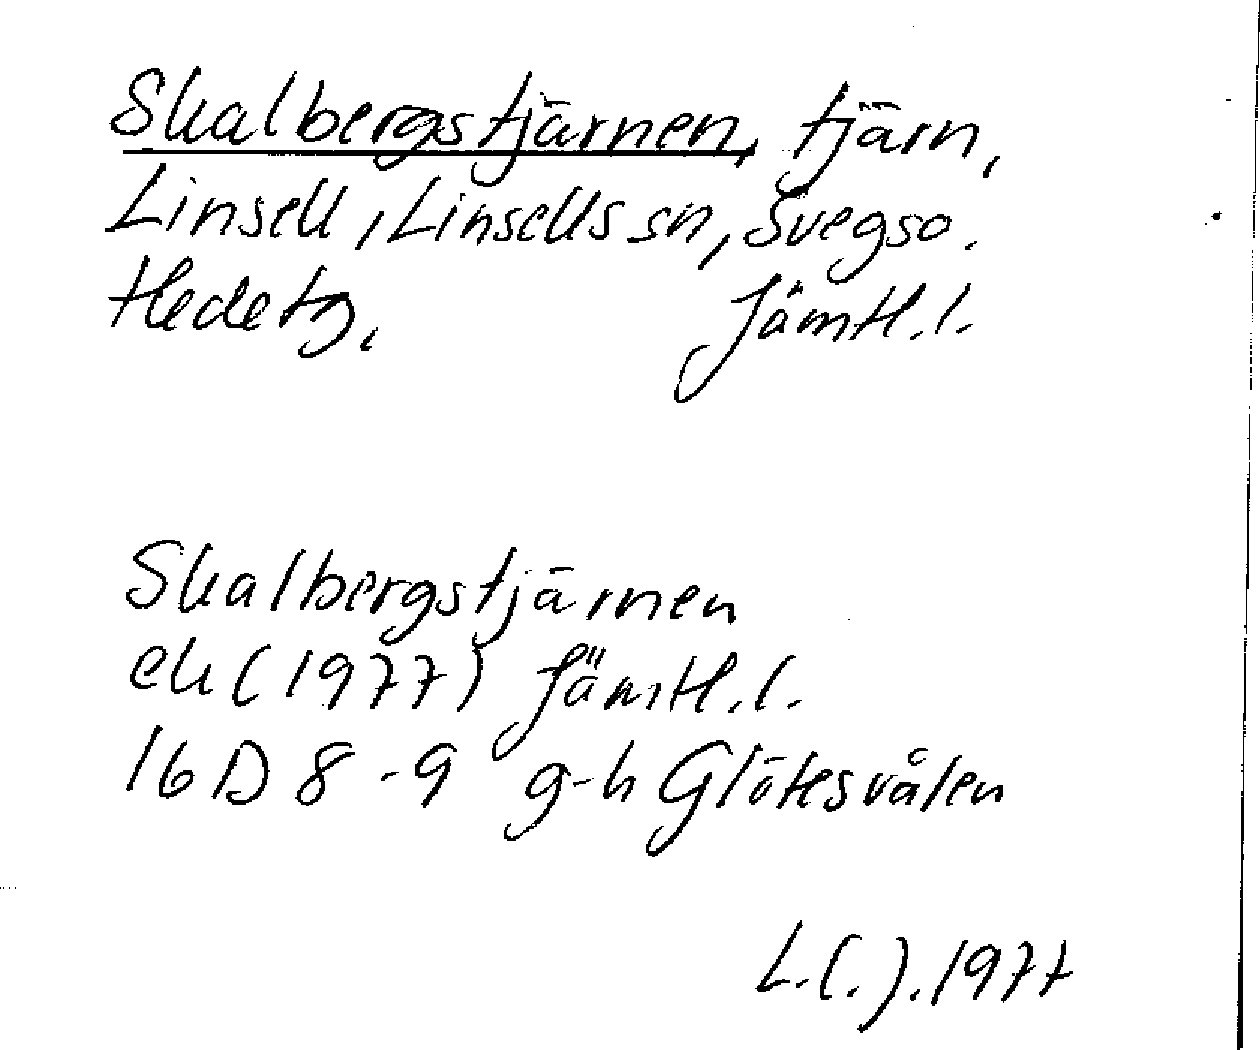 Skalbergstjärnen, tjärn,
Linsell, Linsells sn, Svegs o.
Hede tg, Jämtl. l.
Skalbergstjärnen
ek (1977) Jämtl. l.
16 D 8-9 g-h Glötesvålen
L.(.).1977